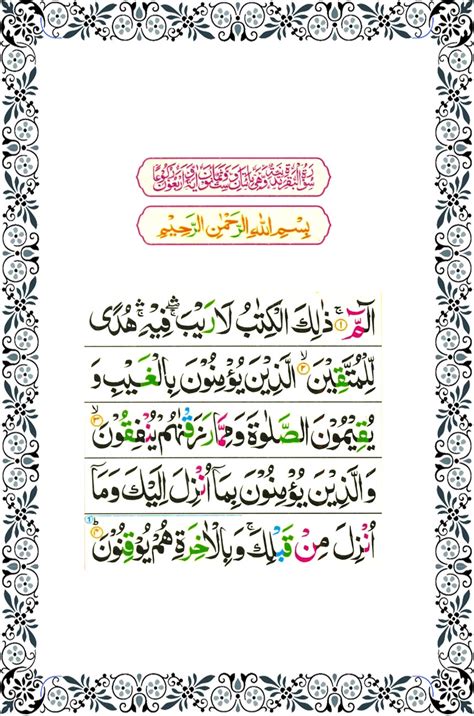 سُوْرَةُ الْبَقَرَةِ مَدَنِيَّةٌ وَّهِيَ مِائَتَانِ وَسِتٌّ وَّثَمَانُوْنَ اٰيَةً وَّاَرْبَعُوْنَ رُكُوْعًا
بِسْمِ اللّٰهِ الرَّحْمٰنِ الرَّحِيْمِ
الٓمّٓ ۚ‏﴿۱﴾ ذٰلِكَ الْكِتٰبُ لَا رَيْبَ ۛۚ فِيْهِ ۛۚ هُدًى
لِّلْمُتَّقِيْنَ ۙ‏﴿۲﴾ الَّذِيْنَ يُؤْمِنُوْنَ بِالْغَيْبِ وَ
يُقِيْمُوْنَ الصَّلٰوةَ وَمِمَّا رَزَقْنٰهُمْ يُنْفِقُوْنَ ۙ‏﴿۳﴾
وَالَّذِيْنَ يُؤْمِنُوْنَ بِمَاۤ اُنْزِلَ اِلَيْكَ وَمَاۤ
اُنْزِلَ مِنْ قَبْلِكَ ۚ وَبِالْاٰخِرَةِ هُمْ يُوْقِنُوْنَ ؕ‏﴿۴﴾